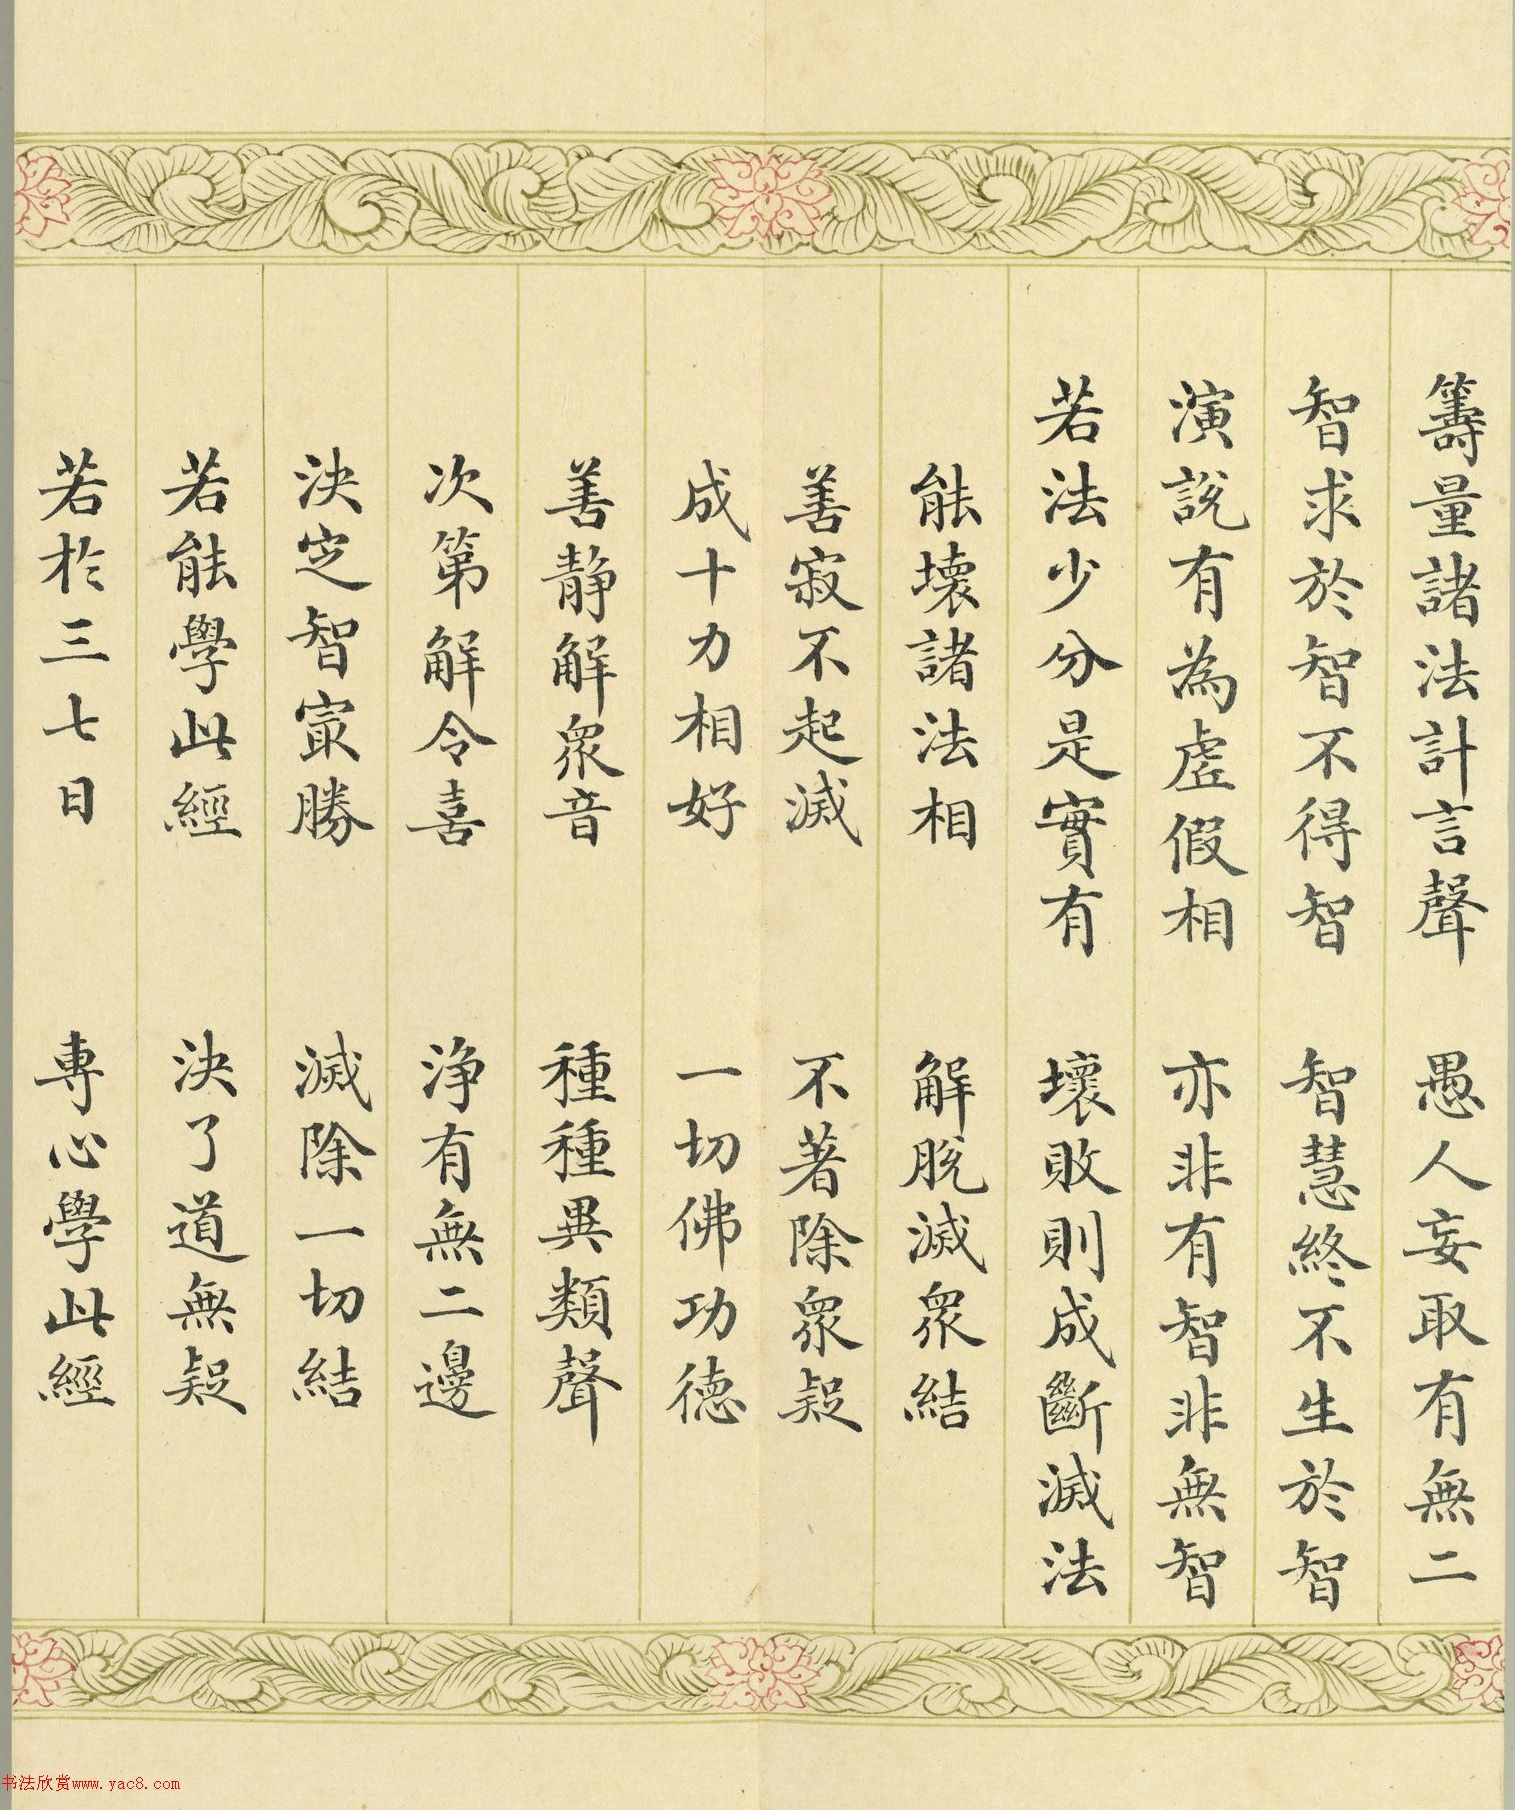 籌量諸法計言聲　愚人妄取有無二
智求於智不得智　智慧終不生於智
演說有為虛假相　亦非有智非無智
若法少分是實有　壞敗則成斷滅法
能壞諸法相　解脫滅眾結
善寂不起滅　不著除眾疑
成十力相好　一切佛功德
善靜解眾音　種種異類聲
次第解令喜　淨有無二邊
決定智寂勝　滅除一切結
若能學此經　決了道無疑
若於三七日　專心學此經
书法欣赏www.yac8.com